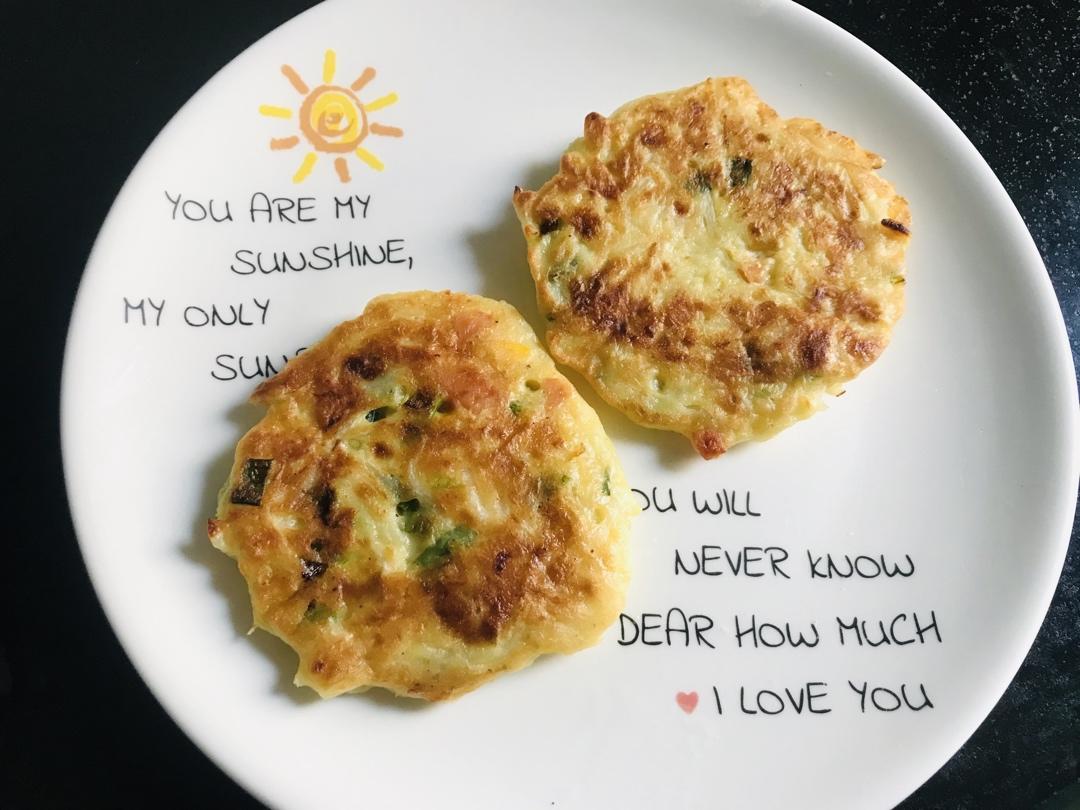 YOU ARE MY
SUNSHINE,
MY ONLY
WILL
NEVER KNOW
DEAR HOW MUCH
I LOVE YOU